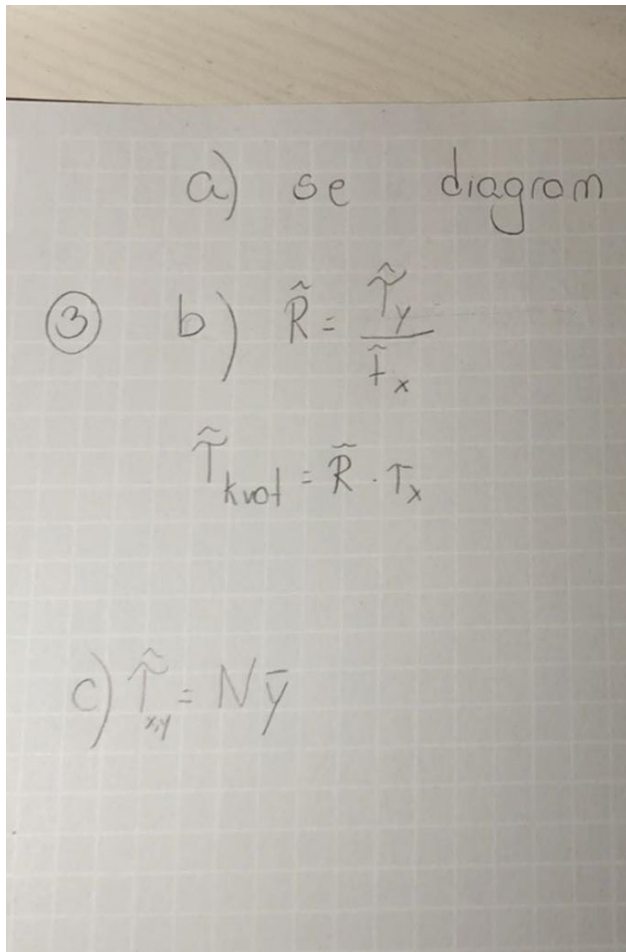 a) se diagram
③ b) R̂ = T̂y / T̂x
T̂kvot = R̂ · Tx
c) T̂x,y = Nȳ